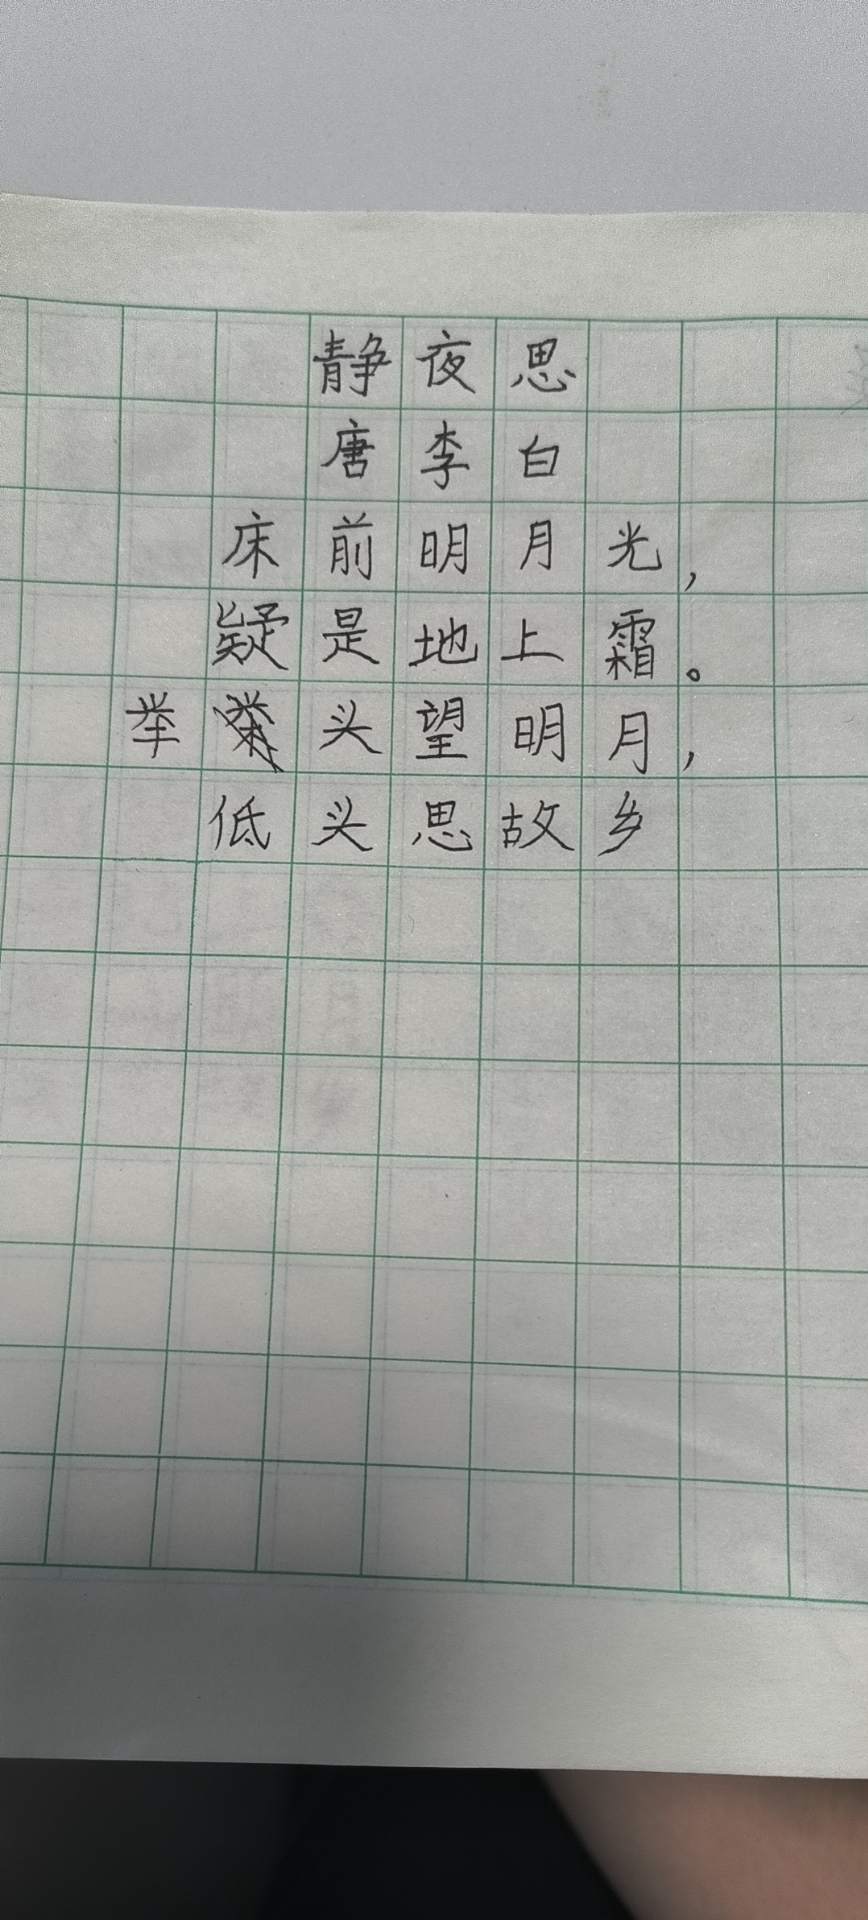 静夜思
唐李白
床前明月光，
疑是地上霜。
举头望明月，
低头思故乡